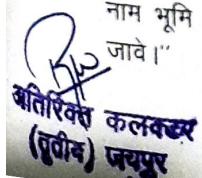 नाम भूमि
जावे।"
अतिरिक्त कलक्टर
(तृतीय) जयपुर